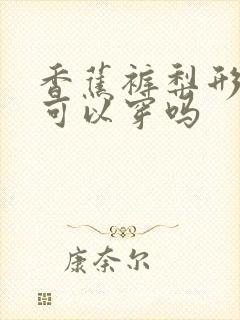 香蕉裤梨形
可以穿吗
康奈尔